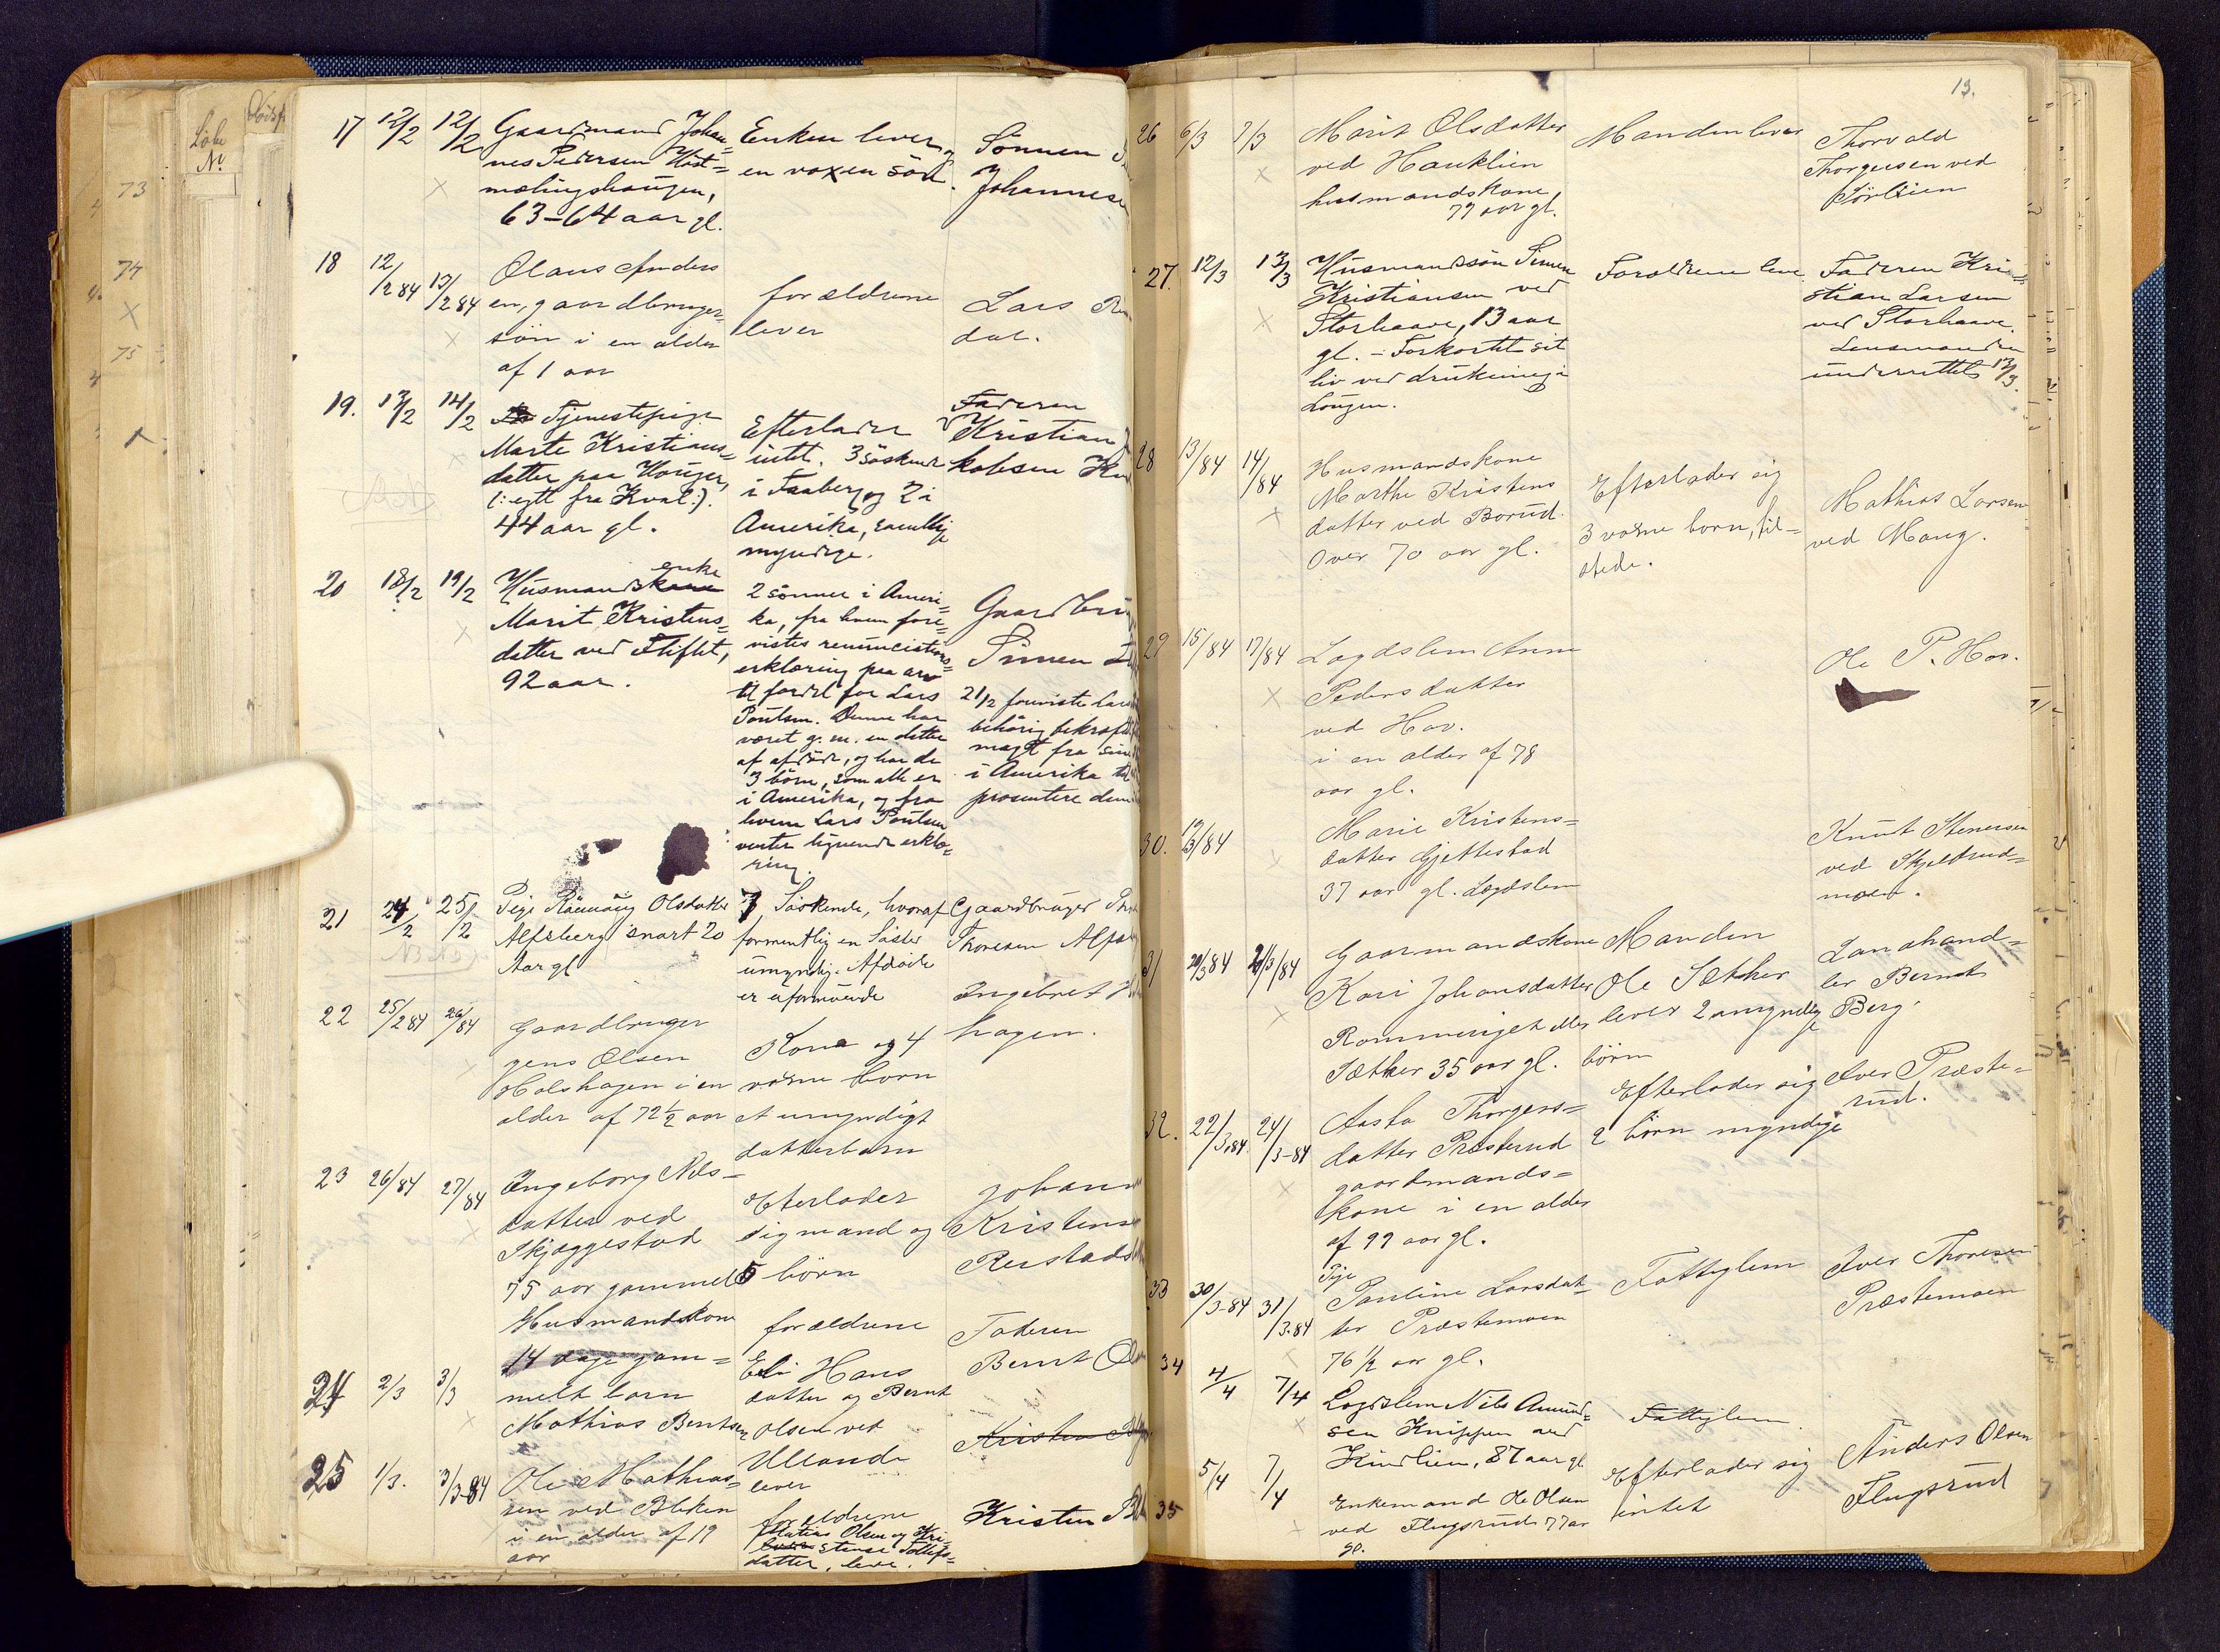 Løbe
No.
Dødsf
73
74
75
17 12/2 12/2 Gaardmand Johan=
nes Pedersen Host=
mælingshaugen,
63-64 aar gl.
Enken lever og
en voxen søn.
Sønnen
Johannese
18 12/2 84 13/2 84 Olaus Anders
en, gaardbruger=
søn i en alder
af 1 aar
forældrene
lever
Lars
dal.
19. 13/2 14/2 Tjenestepige
Marte Kristians=
datter paa Houger,
(: egtl fra Kval :).
44 aar gl.
Efterlader
intet. 3 søskende
i Faaberg og 2 i
Amerika, samtlige
myndige.
Faderen
Kristian
kobsen
20 18/2 19/2 Husmandskone
enke
Marit Kristens=
datter ved Fliflet,
92 aar.
2 sønner i Ameri=
ka, fra hvem fore=
vistes renunciations=
erklæring paa arv
til fordel for Lars
Poulsen. Denne har
været g. m. en datter
af afdøde, og har de
3 børn, som alle er
i Amerika, og fra
hvem Lars Poulsen
venter lignende erklæ=
ring.
Gaardbru
Simen
21/2 foreviste Lars
behørig bekræft
magt fra sine
i Amerika til
præsentere dem
21 24/2 25/2 Pige Rønnaug Olsdatter
Alfsberg snart 20
Aar gl
7 Søskende, hvoraf
formentlig en Søster
umyndig. Afdøde
er uformuende
Gaardbruger
Thoresen Alfs
22 25/2 84 26/84 Gaardbruger
Jens Olsen
Holshagen i en
alder af 72½ aar
Kone og 4
voxne børn
et umyndigt
datterbarn
Ingebret
hagen.
23 26/84 27/84 Ingeborg Nils=
datter ved
Skjæggestad
75 aar gammel
Husmandskone
Efterlader
sig mand og
5 børn
Johann
Kristens
Rustads
24 2/3 3/3 14 dage gam=
melt barn
Mathias Berntsen
forældrene
Eli Hans
datter og Bernt
Olsen ved
Ullande
lever
Faderen
Bernt
Kristen
25 1/3. 3/3-84 Ole Mathias=
sen ved Bleken
i en alder af 19
aar
forældrene
Matias Olsen og Kri=
stense Tollefs=
datter, lever.
Kristen
13.
26 6/3 7/3 Marit Olsdatter
ved Hauklien
husmandskone,
77 aar gl.
Manden lever
Thorvald
Thorgersen ved
Sørlien
27. 12/3 13/3 Husmandssøn Simen
Kristiansen ved
Storhaave, 13 aar
gl. - Forkortet sit
liv ved drukning i
Lougen.
Forældrene leve
Faderen Kri=
stian Larsen
ved Storhaave.
Lensmanden
underrettet 13/3.
28 13/84 14/84 Husmandskone
Marthe Kristens
datter ved Borud.
Over 70 aar gl.
Efterlader sig
3 voxne børn, til=
stede.
Mathias Larsen
ved Maug.
29 15/84 17/84 Lægdslem Anne
Pedersdatter
ved Hov.
i en alder af 78
aar gl.
Ole P. Hov.
30. 19/3/84 Marie Kristens=
datter Gjettestad
37 aar gl. Lægdslem
Knut Stenersen
ved Skjelbrud=
moen.
31 20/3 84 21/3/84 Gaarmandskone
Kari Johansdatter
Rommeriget eller
Sæther 35 aar gl.
Manden
Ole Sæther
lever 2 umyndige
børn
Landhand=
ler Bernt
Berg.
32. 22/3.84. 24/3-84 Aasta Thorgers=
datter Præsterud
gaardmands=
kone i en alder
af 99 aar gl.
Efterlader sig
2 børn myndige
Iver Præste=
rud.
33 30/3-84 31/3.84 Pige
Pauline Larsdat=
ter Præstemoen
76½ aar gl.
Fattiglem
Iver Thoresen
Præstemoen
34 4/4 7/4 Lægdslem Nils Amund=
sen Knippen ved
Kindlien, 87 aar gl
Fattiglem
35 5/4 7/4 Enkemand Ole Olsen
ved Flugsrud 77 aar
gl.
Efterlader sig
intet
Anders Olsen
Flugsrud